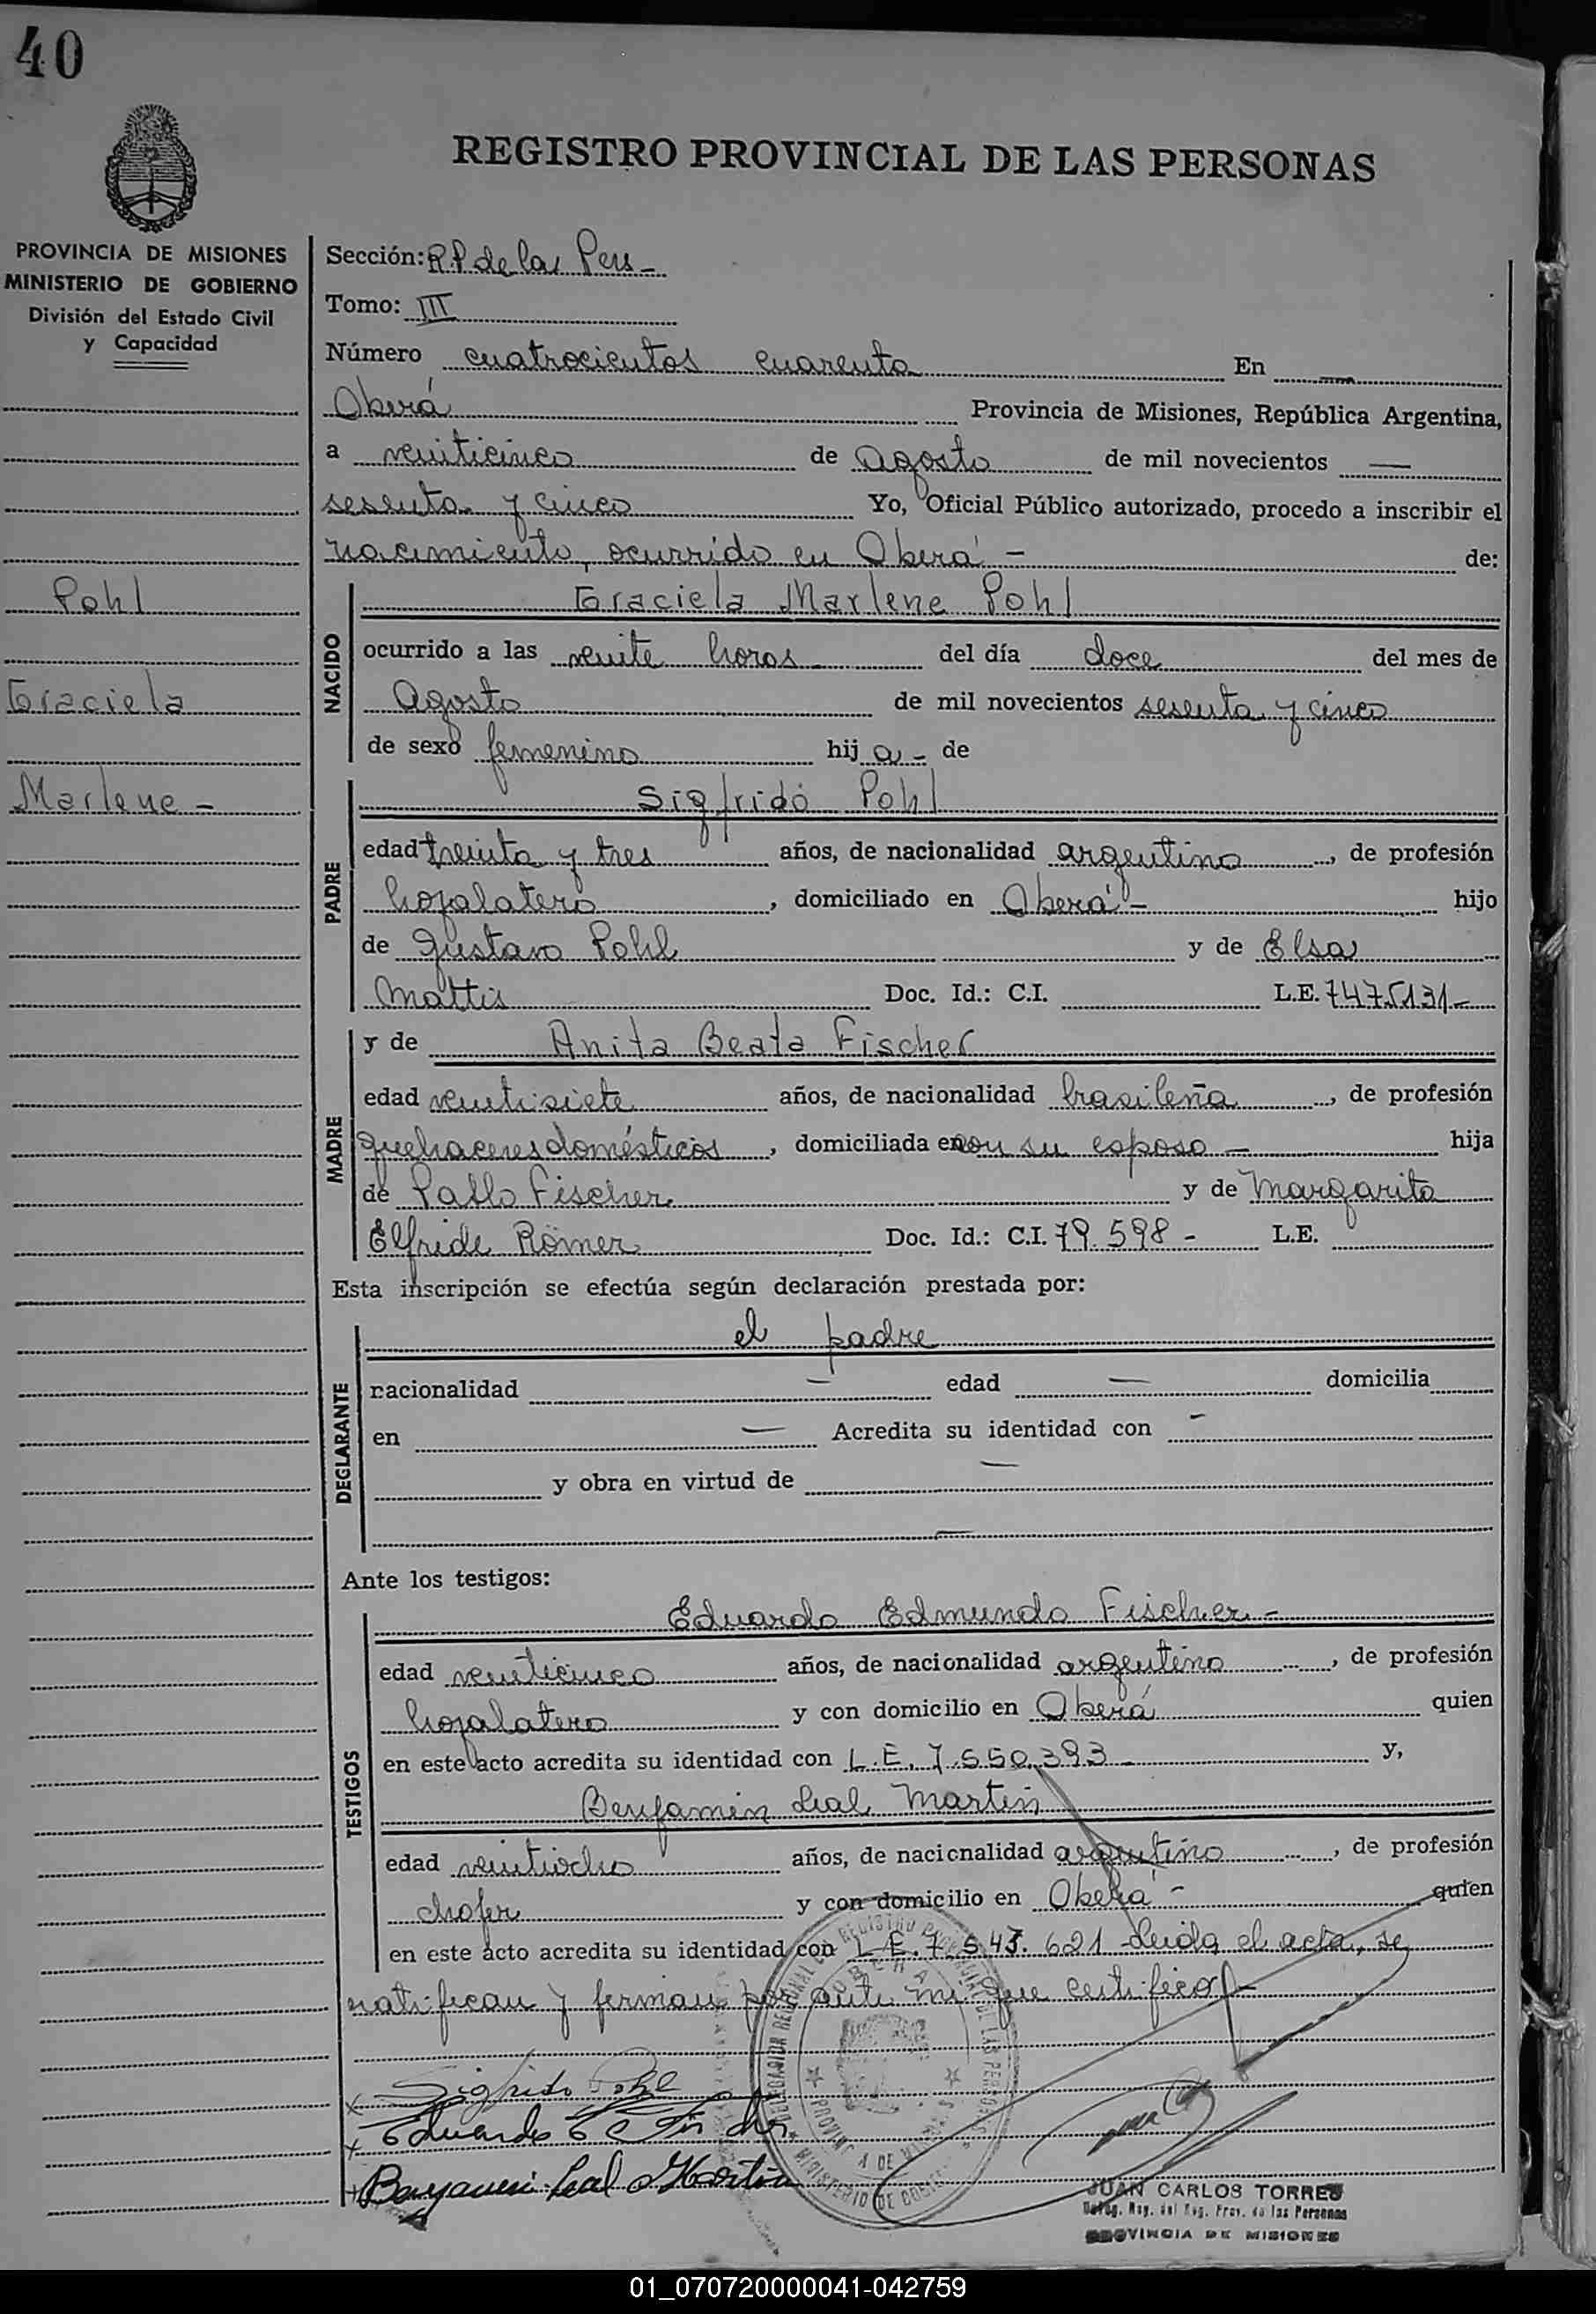 40
REGISTRO PROVINCIAL DE LAS PERSONAS
PROVINCIA DE MISIONES
MINISTERIO DE GOBIERNO
División del Estado Civil
y Capacidad
Pohl
Graciela
Marlene -
Sección: R.P. de las Pers -
Tomo: III
Número cuatrocientos cuarenta En —
Oberá Provincia de Misiones, República Argentina,
a veinticinco de Agosto de mil novecientos —
sesenta y cinco Yo, Oficial Público autorizado, procedo a inscribir el
nacimiento, ocurrido en Oberá - de:
NACIDO
Graciela Marlene Pohl
ocurrido a las veinte horas del día doce del mes de
Agosto de mil novecientos sesenta y cinco
de sexo femenino hija - de
PADRE
Sigfrido Pohl
edad treinta y tres años, de nacionalidad argentino, de profesión
hojalatero, domiciliado en Oberá - hijo
de Gustavo Pohl y de Elsa
Mattis Doc. Id.: C.I. L.E. 7475131-
MADRE
y de Anita Beata Fischer
edad veintisiete años, de nacionalidad brasileña, de profesión
quehaceres domésticos, domiciliada en con su esposo - hija
de Pablo Fischer y de Margarita
Elfride Römer Doc. Id.: C.I. 79.598 - L.E.
Esta inscripción se efectúa según declaración prestada por:
DECLARANTE
el padre
nacionalidad — edad — domicilia
en — Acredita su identidad con -
y obra en virtud de —
—
Ante los testigos:
TESTIGOS
Eduardo Edmundo Fischer -
edad veinticinco años, de nacionalidad argentino, de profesión
hojalatero y con domicilio en Oberá quien
en este acto acredita su identidad con L.E. 7.550.393 - y,
Benjamin Leal Martin
edad veintiocho años, de nacionalidad argentino, de profesión
chofer y con domicilio en Oberá - quien
en este acto acredita su identidad con L.E. 7.543.621 Leida el acta, se
ratifican y firman por ante mi que certifico
x Sigfrido Pohl
x Eduardo E Fischer
+ Benjamin Leal Martin
DELEGACION REGIONAL DEL REGISTRO PROVINCIAL DE LAS PERSONAS
OBERA
PROVINCIA DE MISIONES
MINISTERIO DE GOBIERNO
JUAN CARLOS TORRES
Deleg. Reg. del Reg. Prov. de las Personas
PROVINCIA DE MISIONES
01_070720000041-042759